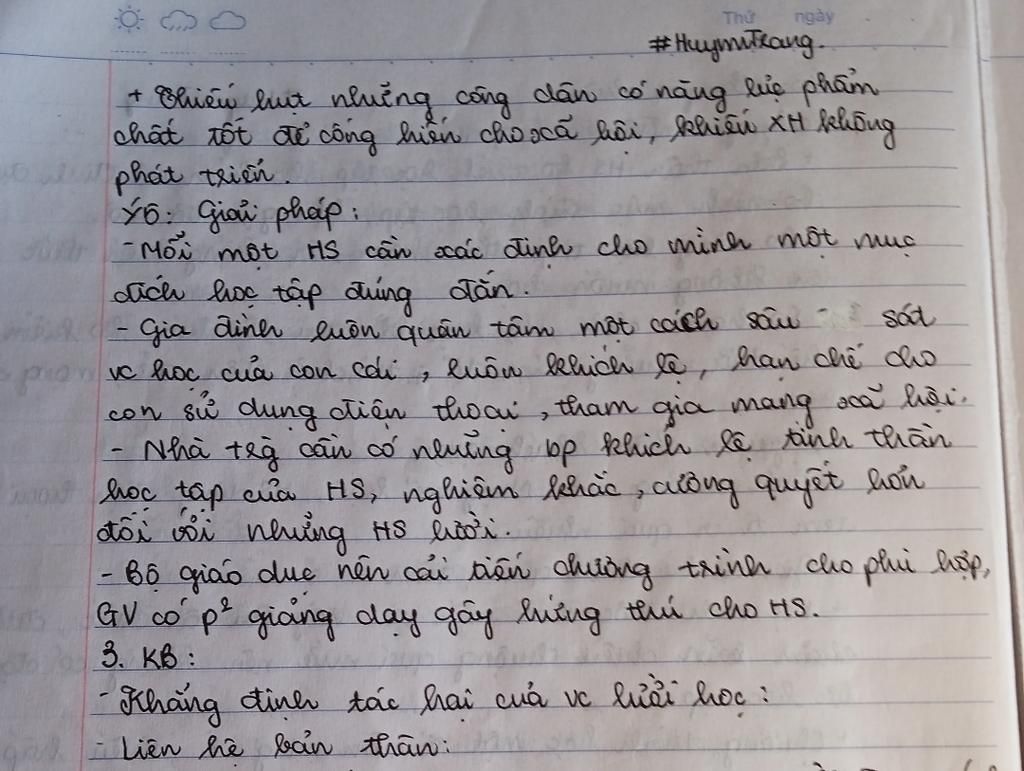 Thứ ngày
#HuymTrang.
+ Thiếu hụt những công dân có năng lực phẩm
chất tốt để cống hiến cho xã hội, khiến XH không
phát triển.
Ý6: Giải pháp:
- Mỗi một HS cần xác định cho mình một mục
đích học tập đúng đắn.
- Gia đình luôn quan tâm một cách sâu - sát
vc học của con cái, luôn khích lệ, hạn chế cho
con sử dụng điện thoại, tham gia mạng xã hội.
- Nhà trg cần có những bp khích lệ tinh thần
học tập của HS, nghiêm khắc, cương quyết hơn
đối với những HS lười.
- Bộ giáo dục nên cải tiến chương trình cho phù hợp,
GV có p² giảng dạy gây hứng thú cho HS.
3. KB:
- Khẳng định tác hại của vc lười học:
- Liên hệ bản thân: